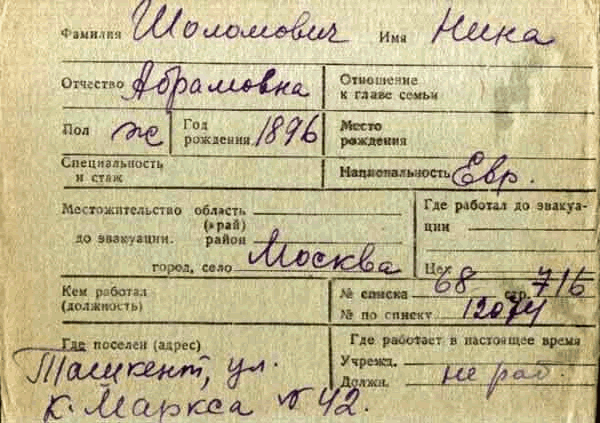 Фамилия Шоломович Имя Нина
Отчество Абрамовна Отношение к главе семьи
Пол ж Год рождения 1896 Место рождения
Специальность и стаж Национальность Евр.
Местожительство область (край)
до эвакуации. район
город, село Москва
Где работал до эвакуации
Цех
Кем работал (должность)
№ списка 68 стр. 716
№ по списку 12074
Где поселен (адрес)
Ташкент, ул.
К. Маркса № 42.
Где работает в настоящее время
Учрежд.
Должн. не раб.